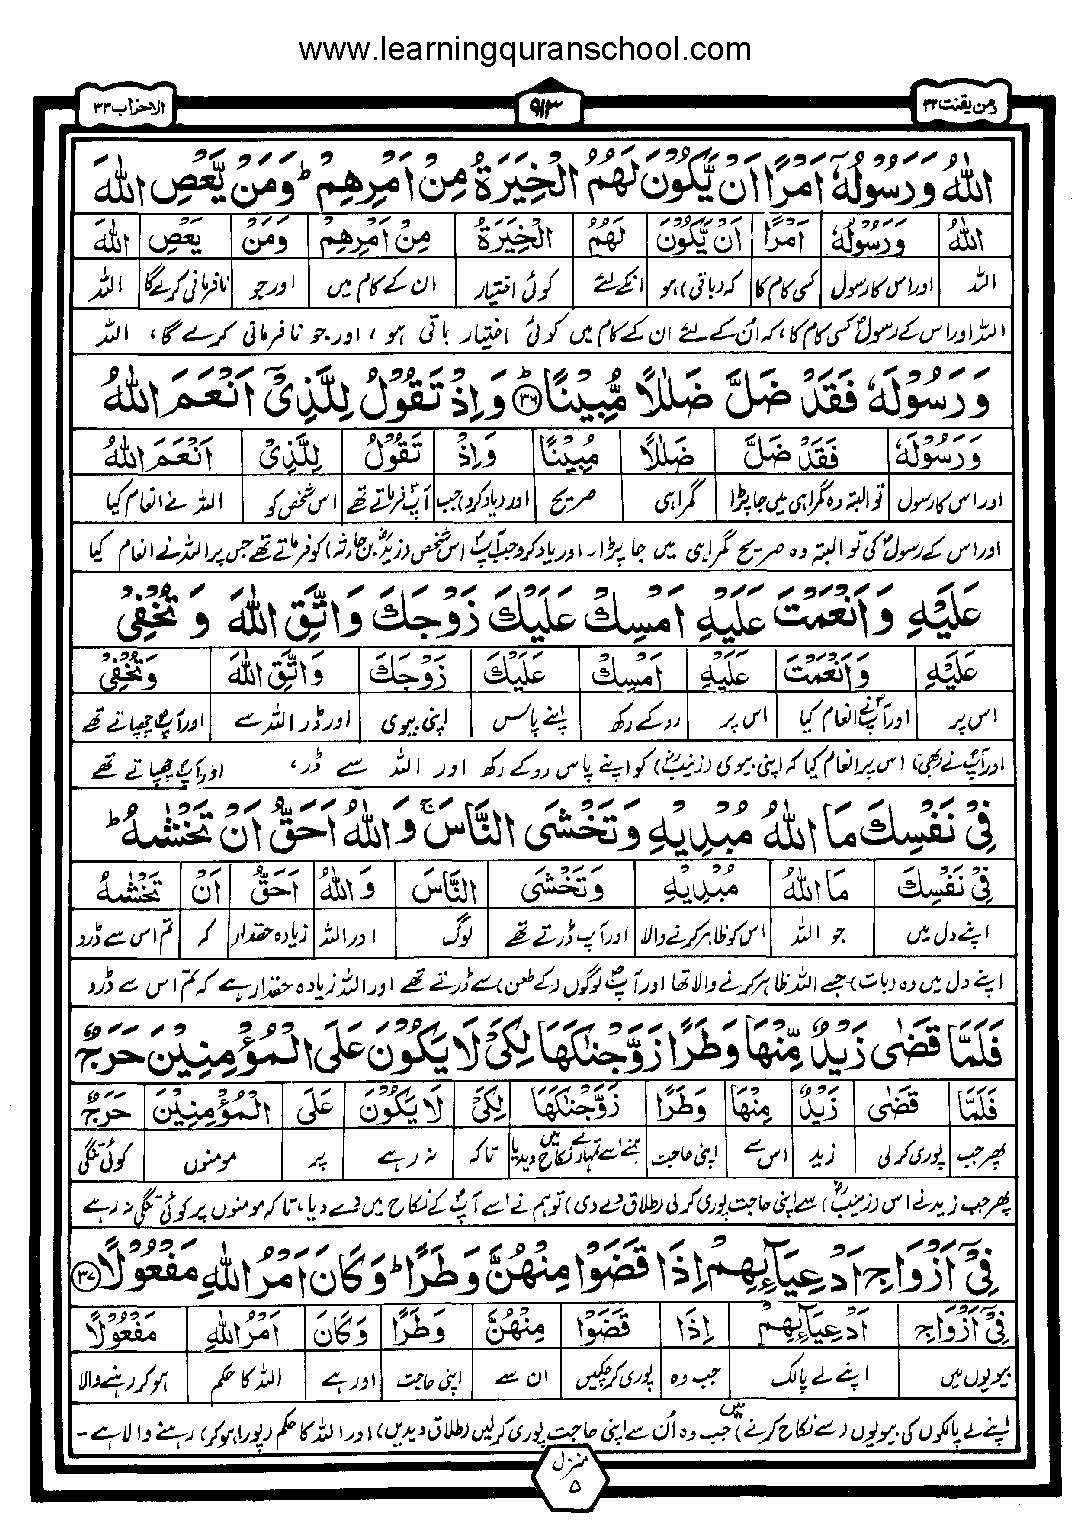 www.learningquranschool.com
ومن یقنت ۲۲ ۹۱۳ الاحزاب ۳۳
اللّٰهُ وَرَسُوْلُهٗۤ اَمْرًا اَنْ یَّكُوْنَ لَهُمُ الْخِیَرَةُ مِنْ اَمْرِهِمْ ؕ وَمَنْ یَّعْصِ اللّٰهَ
اللّٰهُ وَرَسُوْلُهٗۤ اَمْرًا اَنْ یَّكُوْنَ لَهُمُ الْخِیَرَةُ مِنْ اَمْرِهِمْ وَمَنْ یَّعْصِ اللّٰهَ
اللہ اور اس کا رسول کسی کام کا کہ (باقی) ہو انکے لئے کوئی اختیار ان کے کام میں اور جو نافرمانی کرے گا اللہ
اللہ اور اس کے رسولؐ کسی کام کا، کہ اُن کے لئے ان کے کام میں کوئی اختیار باقی ہو ، اور جو نافرمانی کرے گا، اللہ
وَرَسُوْلَهٗ فَقَدْ ضَلَّ ضَلٰلًا مُّبِیْنًا ؕ۳۶ وَاِذْ تَقُوْلُ لِلَّذِیْۤ اَنْعَمَ اللّٰهُ
وَرَسُوْلَهٗ فَقَدْ ضَلَّ ضَلٰلًا مُّبِیْنًا وَاِذْ تَقُوْلُ لِلَّذِیْۤ اَنْعَمَ اللّٰهُ
اور اس کا رسول تو البتہ وہ گمراہی میں جا پڑا گمراہی صریح اور (یاد کرو) جب آپؐ فرماتے تھے اس شخص کو اللہ نے انعام کیا
اور اس کے رسولؐ کی تو البتہ وہ صریح گمراہی میں جا پڑا ۔ اور یاد کرو جب آپؐ اس شخص (زیدؓ بن حارثہ) کو فرماتے تھے جس پر اللہ نے انعام کیا
عَلَیْهِ وَاَنْعَمْتَ عَلَیْهِ اَمْسِكْ عَلَیْكَ زَوْجَكَ وَاتَّقِ اللّٰهَ وَتُخْفِیْ
عَلَیْهِ وَاَنْعَمْتَ عَلَیْهِ اَمْسِكْ عَلَیْكَ زَوْجَكَ وَاتَّقِ اللّٰهَ وَتُخْفِیْ
اس پر اور آپؐ نے انعام کیا اس پر روکے رکھ اپنے پاس اپنی بیوی اور ڈر اللہ سے اور آپؐ چھپاتے تھے
اور آپؐ نے (بھی) اس پر انعام کیا کہ اپنی بیوی (زینبؓ) کو اپنے پاس روکے رکھ اور اللہ سے ڈر، اور آپؐ چھپاتے تھے
فِیْ نَفْسِكَ مَا اللّٰهُ مُبْدِیْهِ وَتَخْشَی النَّاسَ ۚ وَاللّٰهُ اَحَقُّ اَنْ تَخْشٰىهُ ؕ
فِیْ نَفْسِكَ مَا اللّٰهُ مُبْدِیْهِ وَتَخْشَی النَّاسَ وَاللّٰهُ اَحَقُّ اَنْ تَخْشٰىهُ
اپنے دل میں جو اللہ اس کو ظاہر کرنے والا اور آپ ڈرتے تھے لوگ اور اللہ زیادہ حقدار کہ تم اس سے ڈرو
اپنے دل میں وہ (بات) جسے اللہ ظاہر کرنے والا تھا اور آپؐ لوگوں (کے طعن) سے ڈرتے تھے اور اللہ زیادہ حقدار ہے کہ تم اس سے ڈرو
فَلَمَّا قَضٰی زَیْدٌ مِّنْهَا وَطَرًا زَوَّجْنٰكَهَا لِكَیْ لَا یَكُوْنَ عَلَی الْمُؤْمِنِیْنَ حَرَجٌ
فَلَمَّا قَضٰی زَیْدٌ مِّنْهَا وَطَرًا زَوَّجْنٰكَهَا لِكَیْ لَا یَكُوْنَ عَلَی الْمُؤْمِنِیْنَ حَرَجٌ
پھر جب پوری کر لی زید اس سے اپنی حاجت ہم نے اسے تمہارے نکاح میں دیدیا تاکہ نہ رہے پر مومنوں کوئی تنگی
پھر جب زید نے اس (زینبؓ) سے اپنی حاجت پوری کر لی (طلاق دے دی) تو ہم نے اسے آپؐ کے نکاح میں دے دیا، تاکہ مومنوں پر کوئی تنگی نہ رہے
فِیْۤ اَزْوَاجِ اَدْعِیَآىِٕهِمْ اِذَا قَضَوْا مِنْهُنَّ وَطَرًا ؕ وَكَانَ اَمْرُ اللّٰهِ مَفْعُوْلًا ۳۷
فِیْۤ اَزْوَاجِ اَدْعِیَآىِٕهِمْ اِذَا قَضَوْا مِنْهُنَّ وَطَرًا وَكَانَ اَمْرُ اللّٰهِ مَفْعُوْلًا
بیویوں میں اپنے لے پالک جب وہ پوری کر چکیں ان سے اپنی حاجت اور ہے اللہ کا حکم ہو کر رہنے والا
اپنے لے پالکوں کی بیویوں (سے نکاح کرنے) میں جب وہ اُن سے اپنی حاجت پوری کر لیں (طلاق دیدیں) اور اللہ کا حکم (پورا ہو کر) رہنے والا ہے ۔
منزل ۵